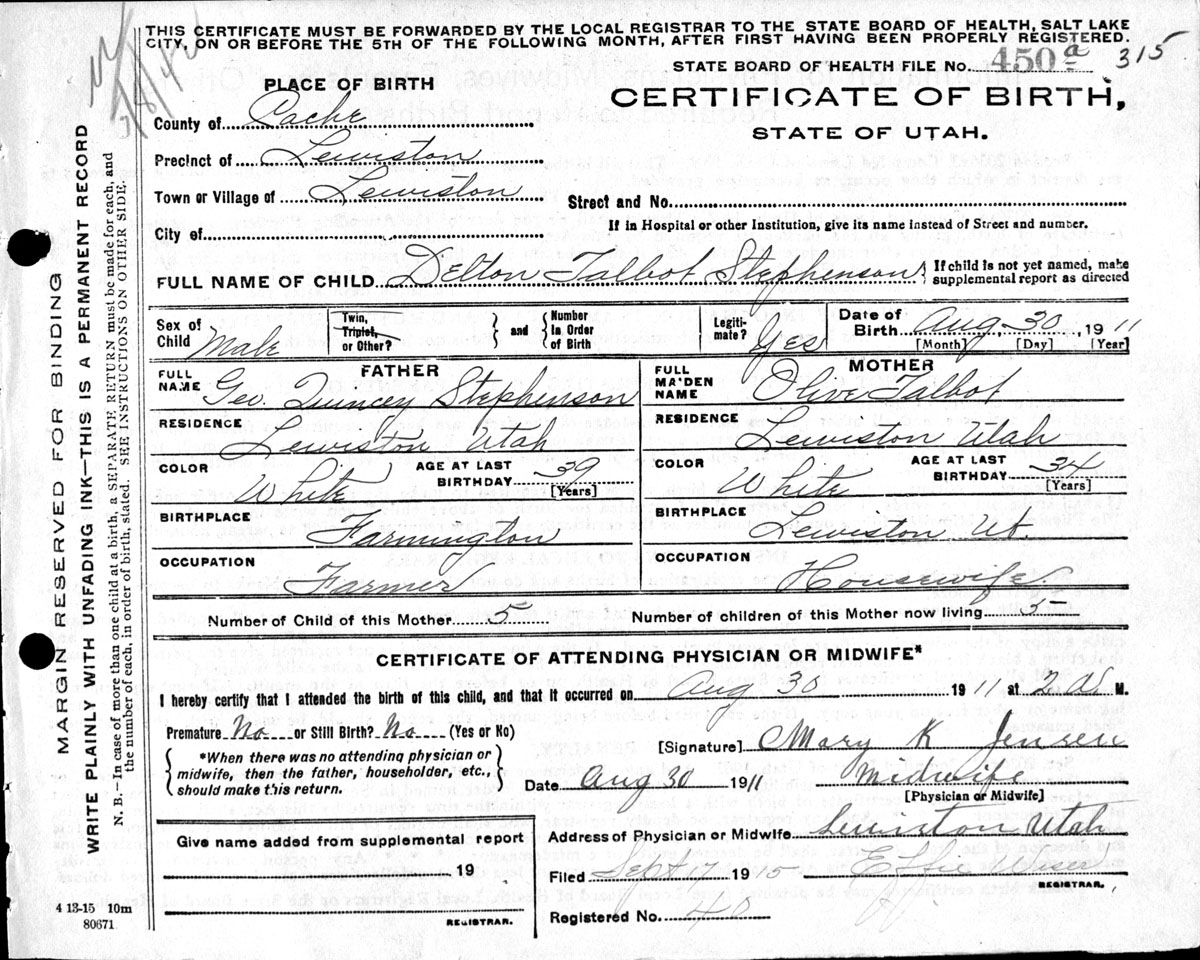 THIS CERTIFICATE MUST BE FORWARDED BY THE LOCAL REGISTRAR TO THE STATE BOARD OF HEALTH, SALT LAKE
CITY, ON OR BEFORE THE 5TH OF THE FOLLOWING MONTH, AFTER FIRST HAVING BEEN PROPERLY REGISTERED.
STATE BOARD OF HEALTH FILE No. 450 a 315
PLACE OF BIRTH
CERTIFICATE OF BIRTH,
STATE OF UTAH.
County of Cache
Precinct of Lewiston
Town or Village of Lewiston
Street and No.
City of
If in Hospital or other Institution, give its name instead of Street and number.
FULL NAME OF CHILD Delton Talbot Stephenson { If child is not yet named, make supplemental report as directed
Sex of Child Male Twin, Triplet, or Other? } and { Number In Order of Birth Legitimate? Yes Date of Birth Aug. 30, 1911
[Month] [Day] [Year]
FATHER
FULL NAME Geo. Quncey Stephenson
RESIDENCE Lewiston Utah
COLOR White AGE AT LAST BIRTHDAY 39 [Years]
BIRTHPLACE Farmington
OCCUPATION Farmer
MOTHER
FULL MAIDEN NAME Olive Talbot
RESIDENCE Lewiston Utah
COLOR White AGE AT LAST BIRTHDAY 34 [Years]
BIRTHPLACE Lewiston Ut.
OCCUPATION Housewife.
Number of Child of this Mother 5 Number of children of this Mother now living 5
CERTIFICATE OF ATTENDING PHYSICIAN OR MIDWIFE*
I hereby certify that I attended the birth of this child, and that it occurred on Aug 30 1911 at 2 a. M.
Premature No or Still Birth? No (Yes or No)
[Signature] Mary K Jensen
{ *When there was no attending physician or midwife, then the father, householder, etc., should make this return. }
Date Aug 30 1911 Midwife
[Physician or Midwife]
Address of Physician or Midwife Lewiston Utah
Give name added from supplemental report
19
REGISTRAR.
Filed Sept 17 1915 Effie
REGISTRAR.
Registered No. 40
4 13-15 10m
80671
MARGIN RESERVED FOR BINDING
WRITE PLAINLY WITH UNFADING INK—THIS IS A PERMANENT RECORD
N. B.—In case of more than one child at birth, a SEPARATE RETURN must be made for each, and
the number of each, in order of birth, stated. SEE INSTRUCTIONS ON OTHER SIDE.